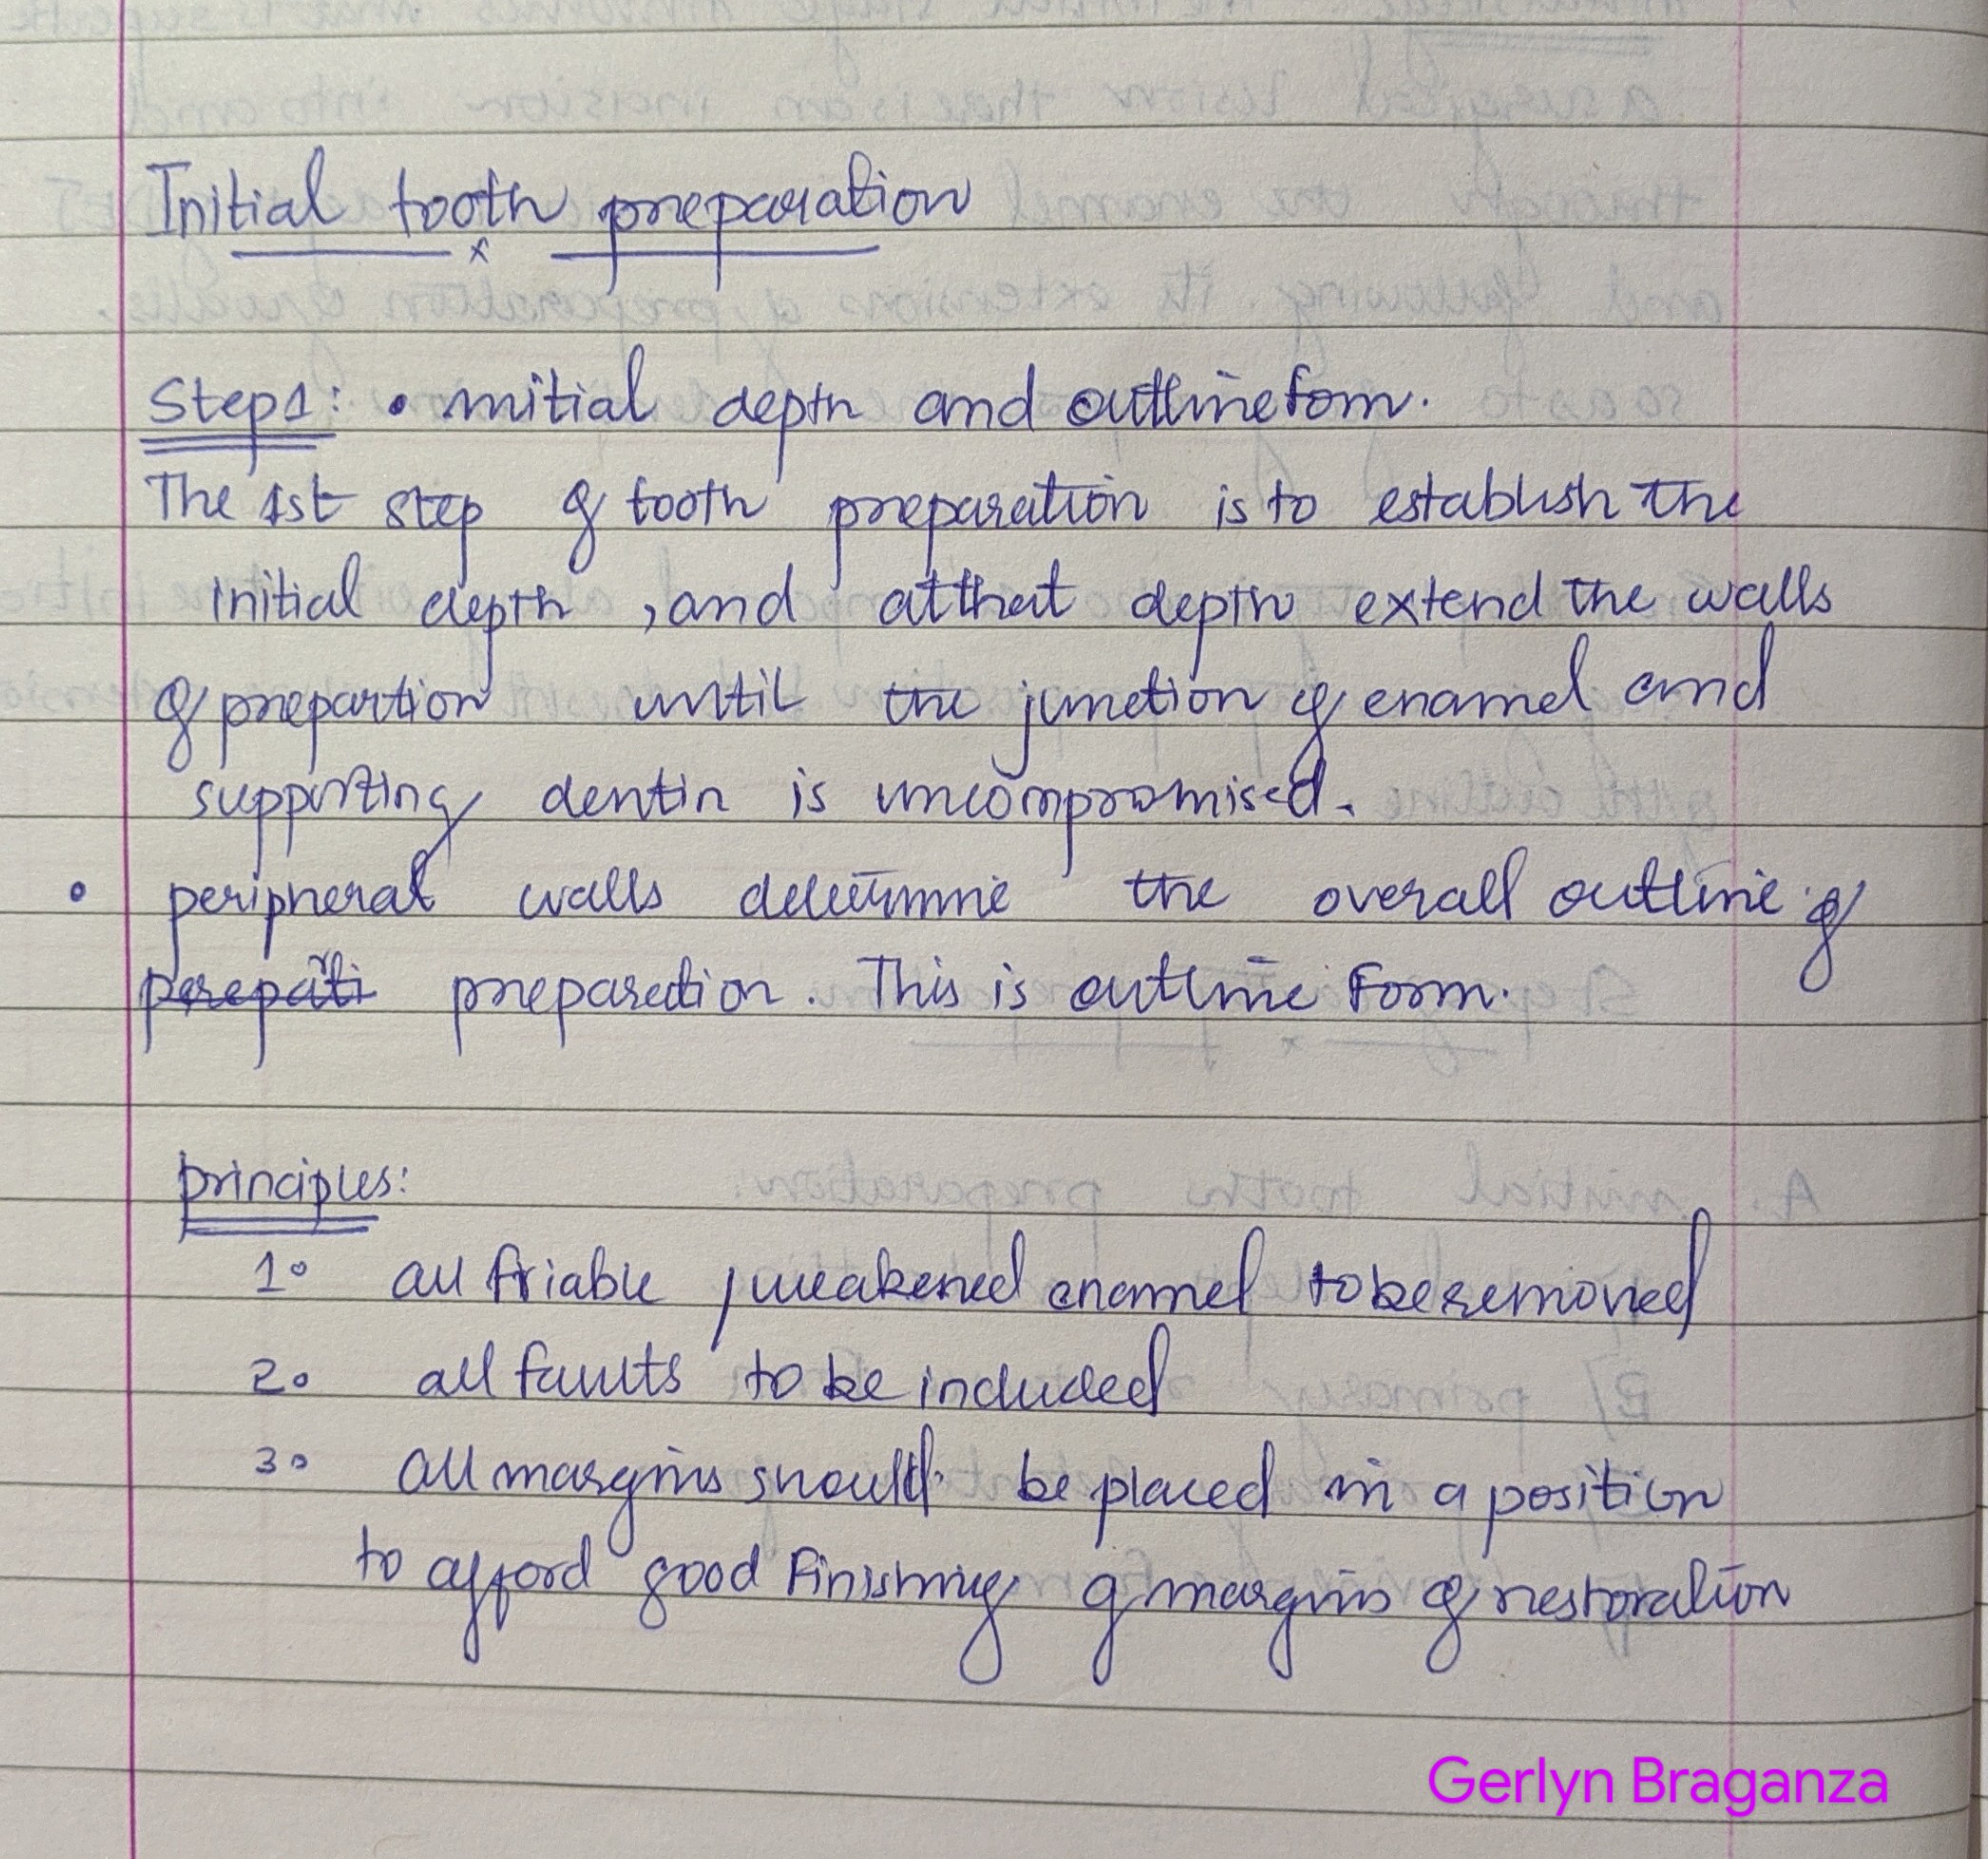 Initial tooth preparation
x
Step 1: • initial depth and outline form.
The 1st step of tooth preparation is to establish the
initial depth , and at that depth extend the walls
of prepartion until the junction of enamel and
supporting dentin is uncompromised.
• peripheral walls determine the overall outline of
preparation. This is outline form.
principles:
1. all friable / weakened enamel to be removed
2. all faults to be included
3. all margins should be placed in a position
to afford good finishing of margins of restoration
Gerlyn Braganza